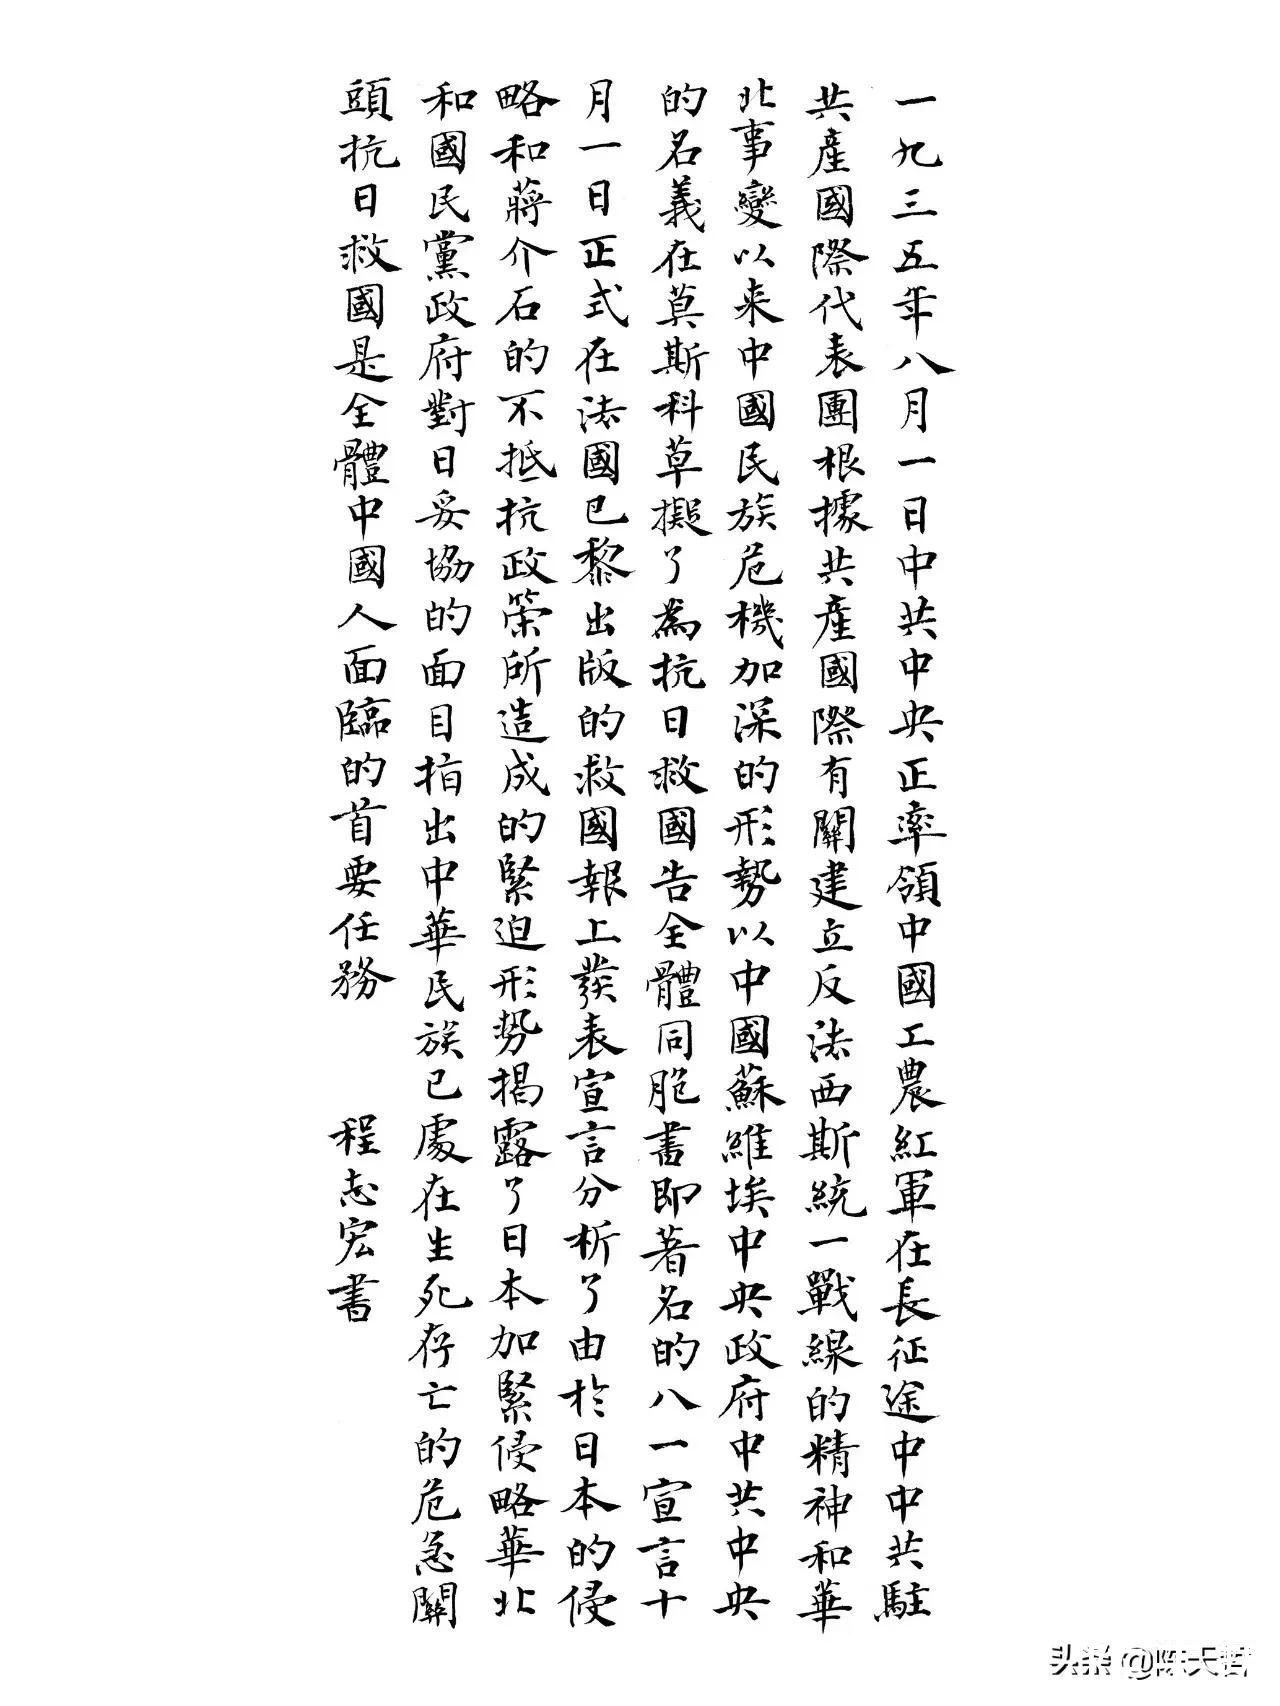 一九三五年八月一日中共中央正率領中國工農紅軍在長征途中中共駐
共產國際代表團根據共產國際有關建立反法西斯統一戰線的精神和華
北事變以来中國民族危機加深的形勢以中國蘇維埃中央政府中共中央
的名義在莫斯科草擬了為抗日救國告全體同胞書即著名的八一宣言十
月一日正式在法國巴黎出版的救國報上發表宣言分析了由於日本的侵
略和蔣介石的不抵抗政策所造成的緊迫形勢揭露了日本加緊侵略華北
和國民黨政府對日妥協的面目指出中華民族已處在生死存亡的危急關
頭抗日救國是全體中國人面臨的首要任務 程志宏書
头条 @陈天哲